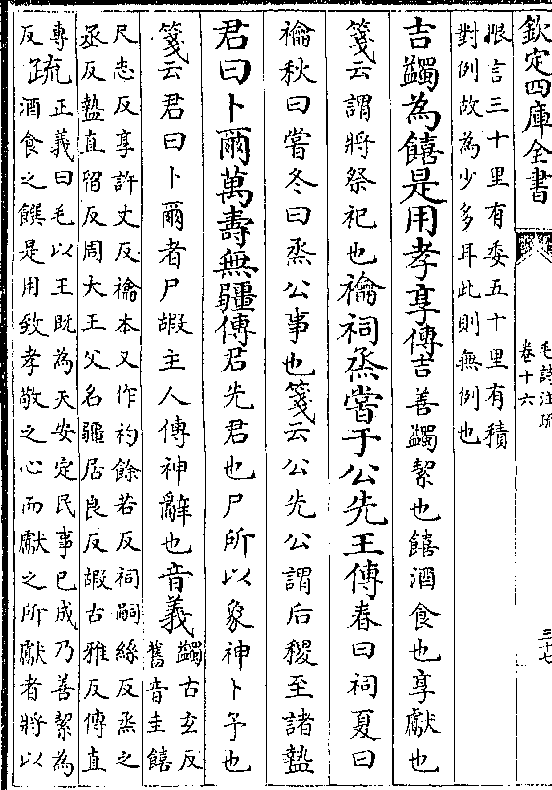 欽定四庫全書
毛詩注疏
卷十六
三十七
恨言三十里有委五十里有積
對例故為少多耳此則無例也
吉蠲為饎是用孝享傳吉善蠲絜也饎酒食也享獻也
箋云謂將祭祀也禴祠烝嘗于公先王傳春曰祠夏曰
禴秋曰嘗冬曰烝公事也箋云公先公謂后稷至諸盩
君曰卜爾萬壽無疆傳君先君也尸所以象神卜予也
箋云君曰卜爾者尸嘏主人傳神辭也音義
蠲古玄反
舊音圭饎
尺志反享許丈反禴本又作礿餘若反祠嗣絲反烝之
丞反盩直留反周大王父名疆居良反嘏古雅反傳直
專疏正義曰毛以王既為天安定民事已成乃善絜為
反酒食之饌是用致孝敬之心而獻之所獻者將以